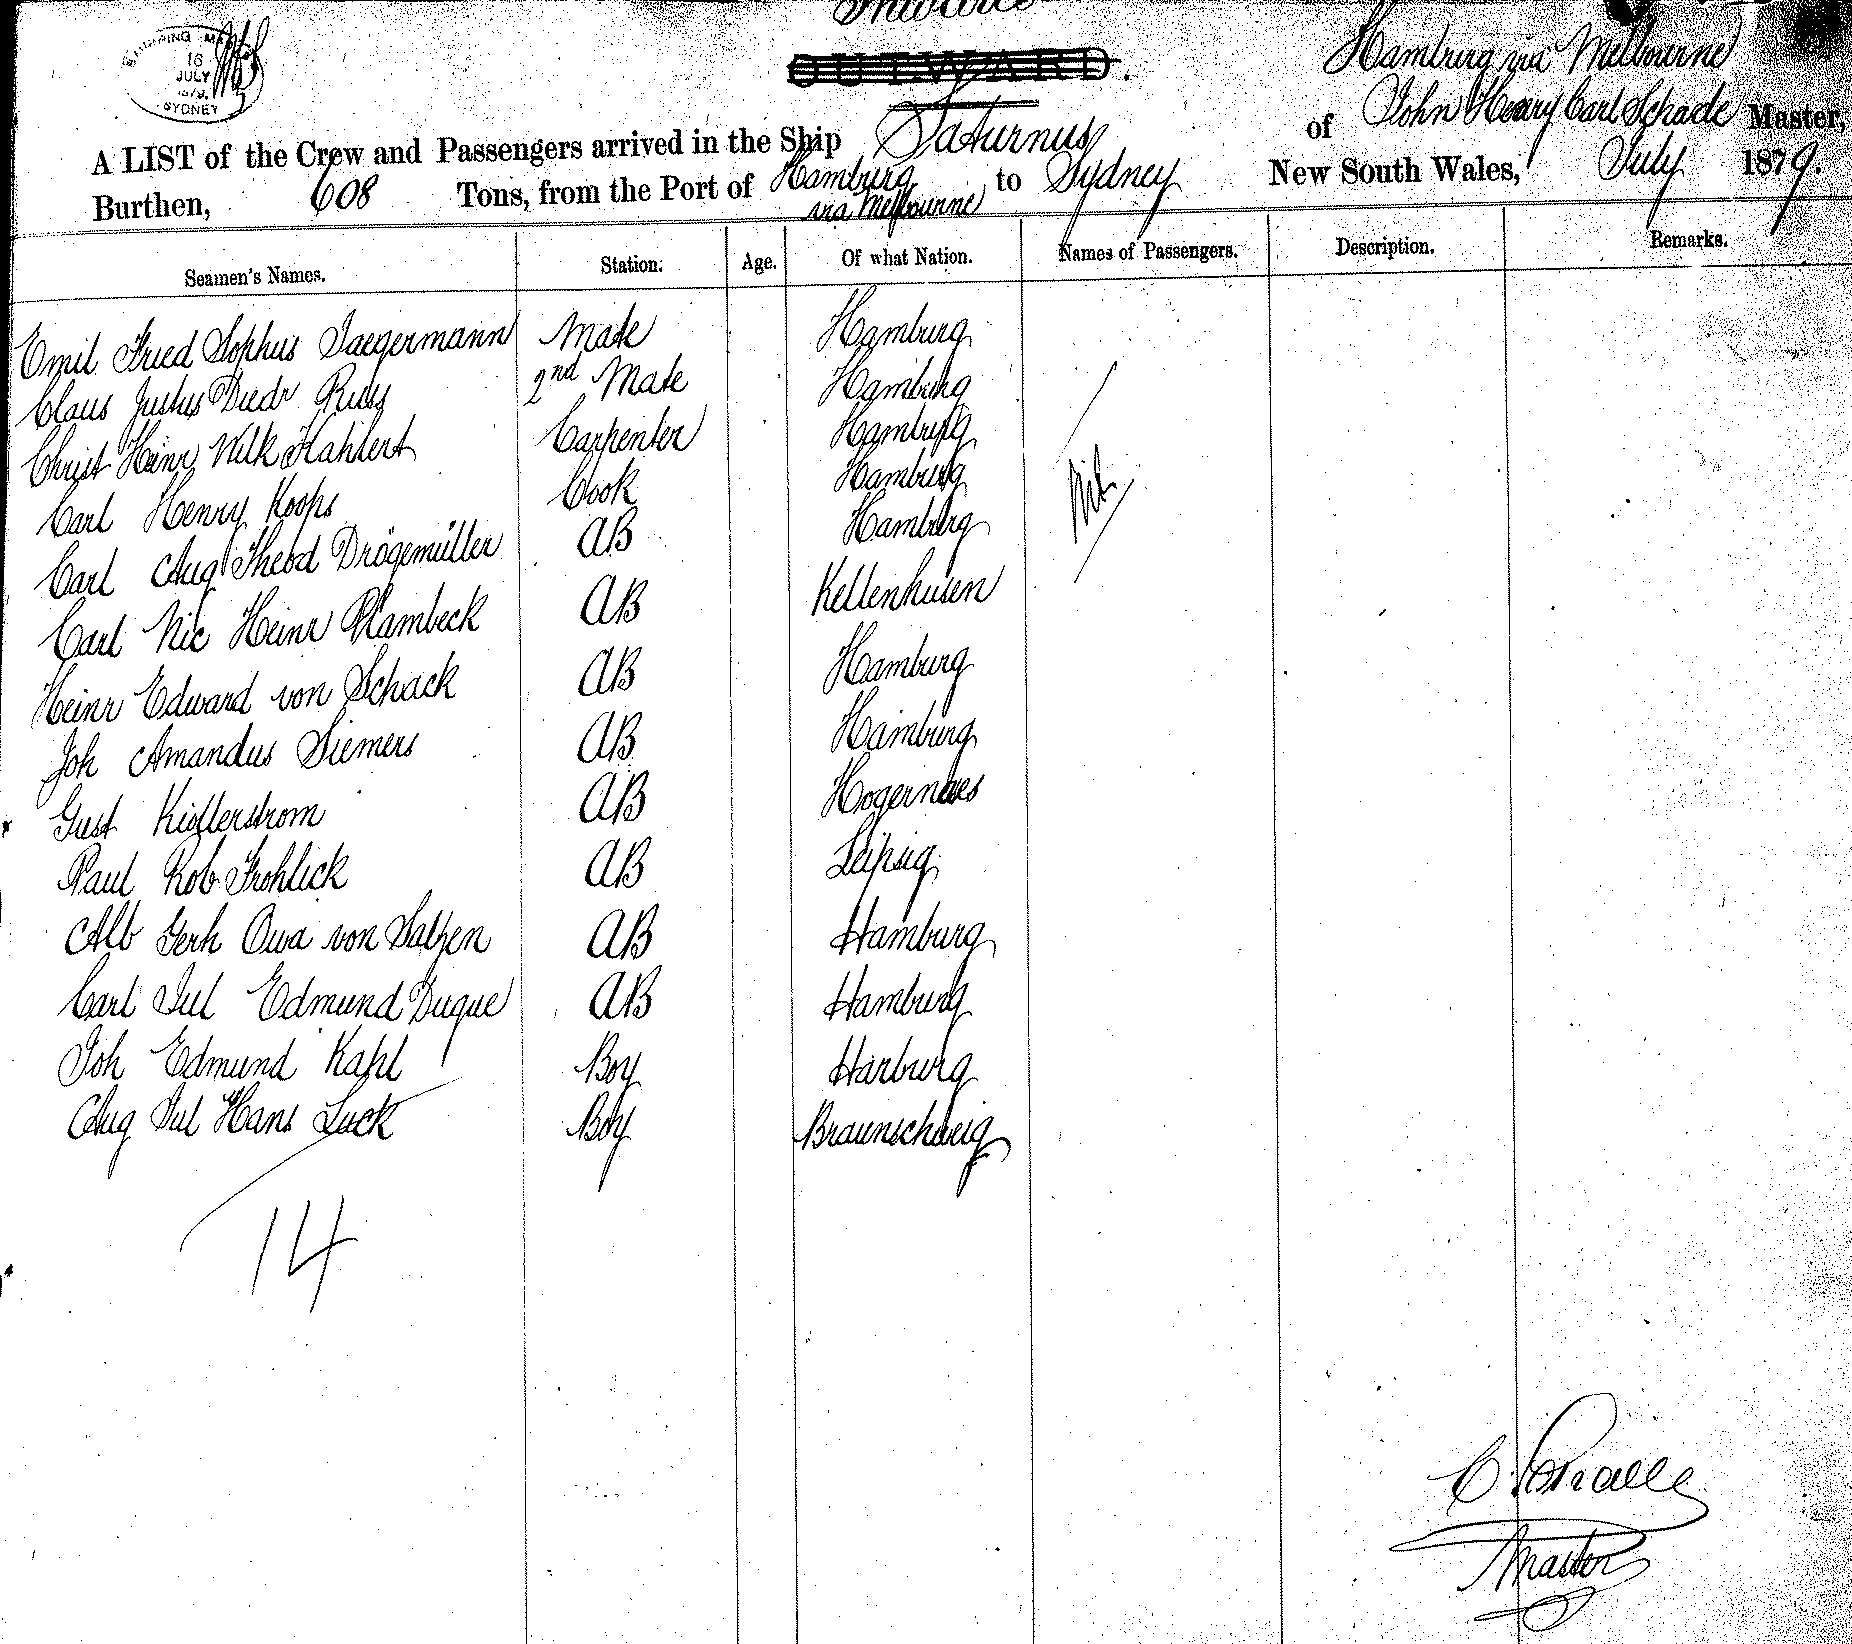 Inwards
OUTWARD.
SHIPPING MA
16
JULY
1879
SYDNEY
Hamburg via Melbourne
A LIST of the Crew and Passengers arrived in the Ship Saturnus of John Henry Carl Schade Master,
Burthen, 608 Tons, from the Port of Hamburg via Melbourne to Sydney New South Wales, July 1879.
Seamen's Names. Station. Age. Of what Nation. Names of Passengers. Description. Remarks.
Emil Fried Sophus Jaegermann Mate Hamburg
Claus Justus Diedr Russ 2nd Mate Hamburg
Christ Heinr Wilh Kahlert Carpenter Hamburg
Carl Henry Koops Cook Hamburg Nil
Carl Aug Theod Drögemüller AB Hamburg
Carl Nic Heinr Plambeck AB Kellenhusen
Heinr Edward von Schack AB Hamburg
Joh Amandus Siemers AB Hamburg
Gust AB
Paul Rob Frohlick AB Leipsig
Alb Gerh von Salzen AB Hamburg
Carl Jul Edmund Duque AB Hamburg
Joh Edmund Kahl Boy Harburg
Aug Jul Hans Luck Boy Braunschweig
14
C. Schade
Master